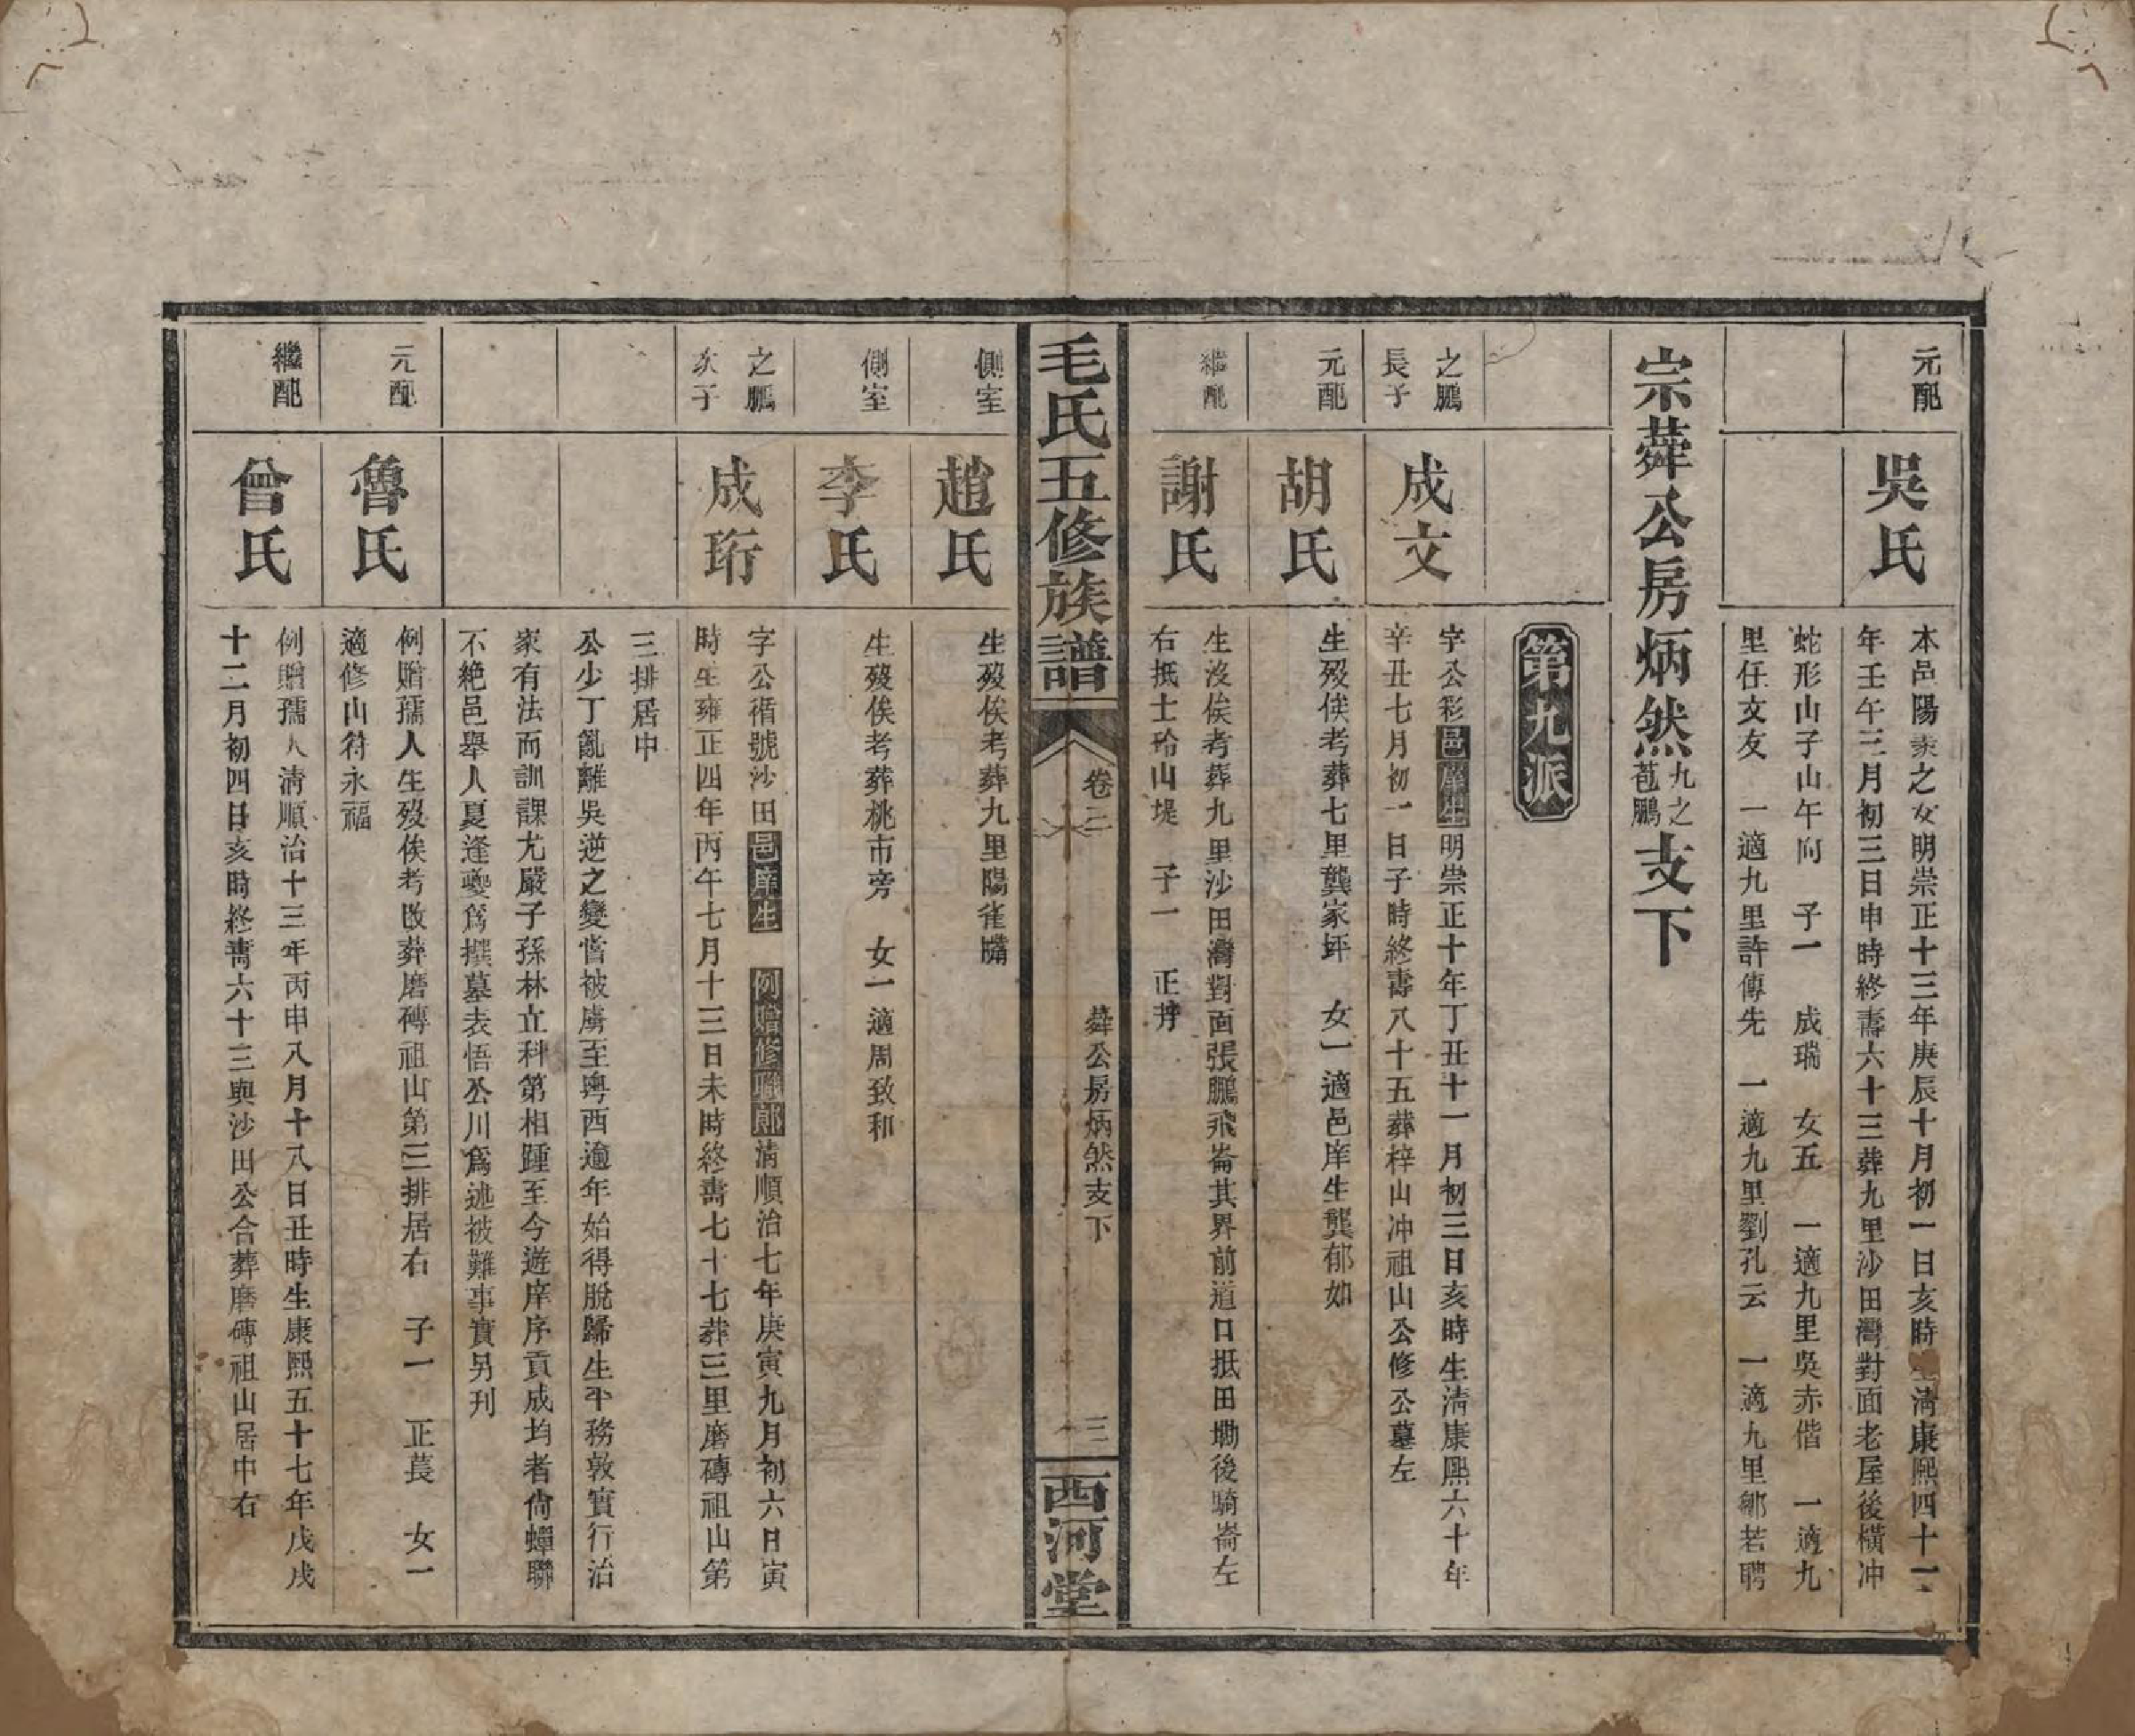 元配
吳氏
本邑陽柰之女明崇正十三年庚辰十月初一日亥時生淸康熙四十一
年壬午三月初三日申時終壽六十三葬九里沙田灣對面老屋後橫冲
蛇形山子山午向　子一　成瑞　女五　一適九里吳赤偕　一適九
里任文友　一適九里許傳先　一適九里劉孔云　一適九里鄒若聘
宗蕣公房炳然九之苞鵬支下
第九派
之鵬
長子
成文
字公彩邑庠生明崇正十年丁丑十一月初三日亥時生淸康熙六十年
辛丑七月初一日子時終壽八十五葬梓山冲祖山公修公墓左
元配
胡氏
生歿俟考葬七里龔家坪　女一適邑庠生龔郁如
繼配
謝氏
生沒俟考葬九里沙田灣對面張鵬飛崙其界前道口抵田墈後騎崙左
右抵士玲山堤　子一　正荢
毛氏五修族譜
卷二
蕣公房炳然支下
三
西河堂
側室
趙氏
生歿俟考葬九里陽雀嘴
側室
李氏
生歿俟考葬桃市旁　女一適周致和
之鵬
次子
成珩
字公循號沙田邑庠生　例贈修職郎淸順治七年庚寅九月初六日寅
時生雍正四年丙午七月十三日未時終壽七十七葬三里磨磚祖山第
三排居中
公少丁亂離吳逆之變嘗被虜至粵西逾年始得脫歸生平務敦實行治
家有法而訓課尤嚴子孫林立科第相踵至今遊庠序貢成均者尙蟬聯
不絕邑舉人夏逢夔爲撰墓表悟公川爲述被難事實另刋
元配
魯氏
例贈孺人生歿俟考改葬磨磚祖山第三排居右　子一　正萇　女一
適修山符永福
繼配
曾氏
例贈孺人淸順治十三年丙申八月十八日丑時生康熙五十七年戊戌
十二月初四日亥時終壽六十三與沙田公合葬磨磚祖山居中右